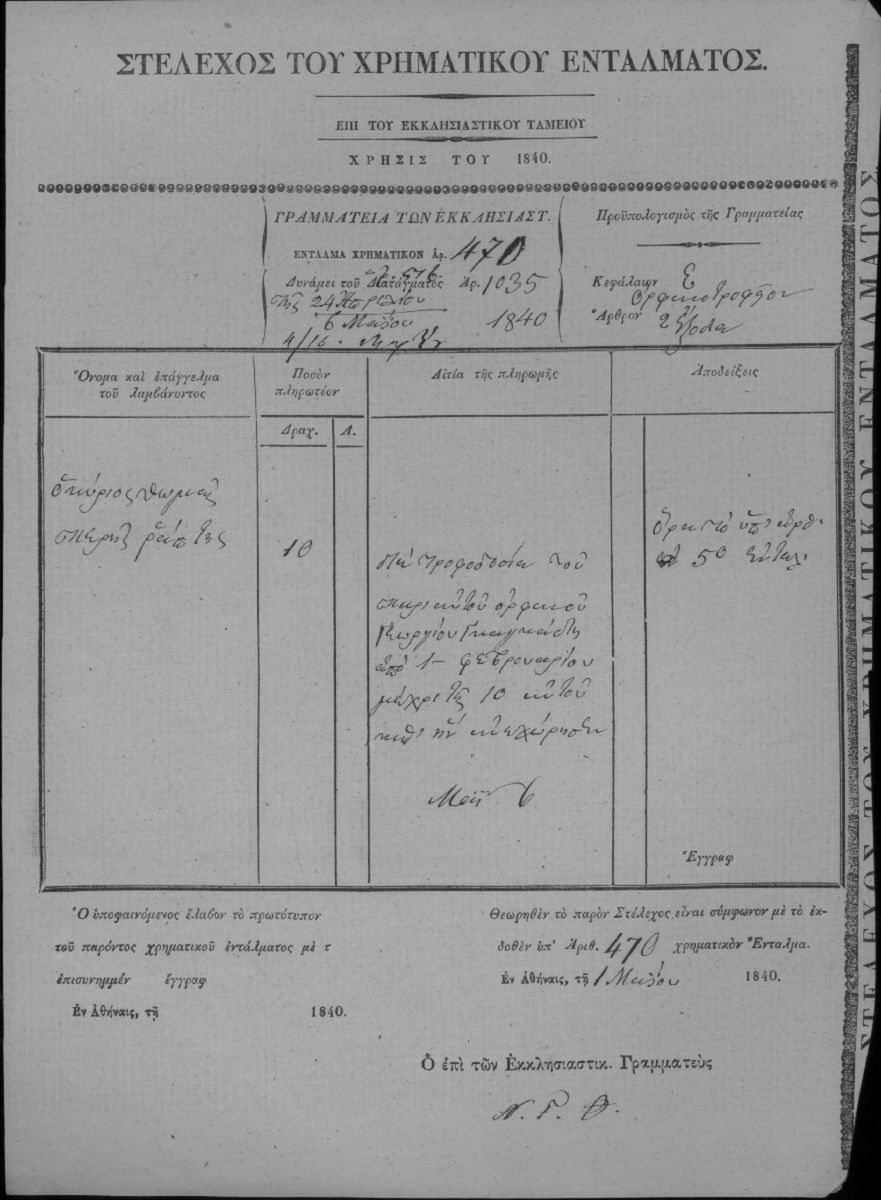 ΣΤΕΛΕΧΟΣ ΤΟΥ ΧΡΗΜΑΤΙΚΟΥ ΕΝΤΑΛΜΑΤΟΣ.
ΕΠΙ ΤΟΥ ΕΚΚΛΗΣΙΑΣΤΙΚΟΥ ΤΑΜΕΙΟΥ
ΧΡΗΣΙΣ ΤΟΥ 1840.
ΓΡΑΜΜΑΤΕΙΑ ΤΩΝ ΕΚΚΛΗΣΙΑΣΤ.
ΕΝΤΑΛΜΑ ΧΡΗΜΑΤΙΚΟΝ Ἀρ. 470
Δυνάμει τοῦ Διατάγματος Ἀρ. 1035
τῆς 24 Ἀπριλίου
6 Μαΐου 1840
4/16
Προϋπολογισμὸς τῆς Γραμματείας
Κεφάλαιον Ε
Ὀρφανοτροφεῖον
Ἄρθρον 2 ἔξοδα
Ὄνομα καὶ ἐπάγγελμα
τοῦ λαμβάνοντος
Ποσὸν
πληρωτέον
Αἰτία τῆς πληρωμῆς
Ἀποδείξεις
Δραχ. Λ.
ὁ κύριος Θωμᾶς
ῥάπτης
10
διὰ τροφοδοσίαν τοῦ
παρ' αὐτοῦ ὀρφανοῦ
Γεωργίου
ἀπὸ 1 Φεβρουαρίου
μέχρι τῆς 10 αὐτοῦ
καθ' ἣν ἀνεχώρησεν
Μαΐ 6
ὅρα τὸ ὑπ' ἀρθ.
50 ἔνταλ.
Ἔγγραφ
Ὁ ὑποφαινόμενος ἔλαβον τὸ πρωτότυπον
τοῦ παρόντος χρηματικοῦ ἐντάλματος μὲ τ
ἐπισυνημμέν ἔγγραφ
Ἐν Ἀθήναις, τῇ 1840.
Θεωρηθὲν τὸ παρὸν Στέλεχος εἶναι σύμφωνον μὲ τὸ ἐκ-
δοθὲν ὑπ' Ἀριθ. 470 χρηματικὸν Ἔνταλμα.
Ἐν Ἀθήναις, τῇ 1 Μαΐου 1840.
Ὁ ἐπὶ τῶν Ἐκκλησιαστικ. Γραμματεὺς
Ν. Γ. Θ.
ΣΤΕΛΕΧΟΣ ΤΟΥ ΧΡΗΜΑΤΙΚΟΥ ΕΝΤΑΛΜΑΤΟΣ